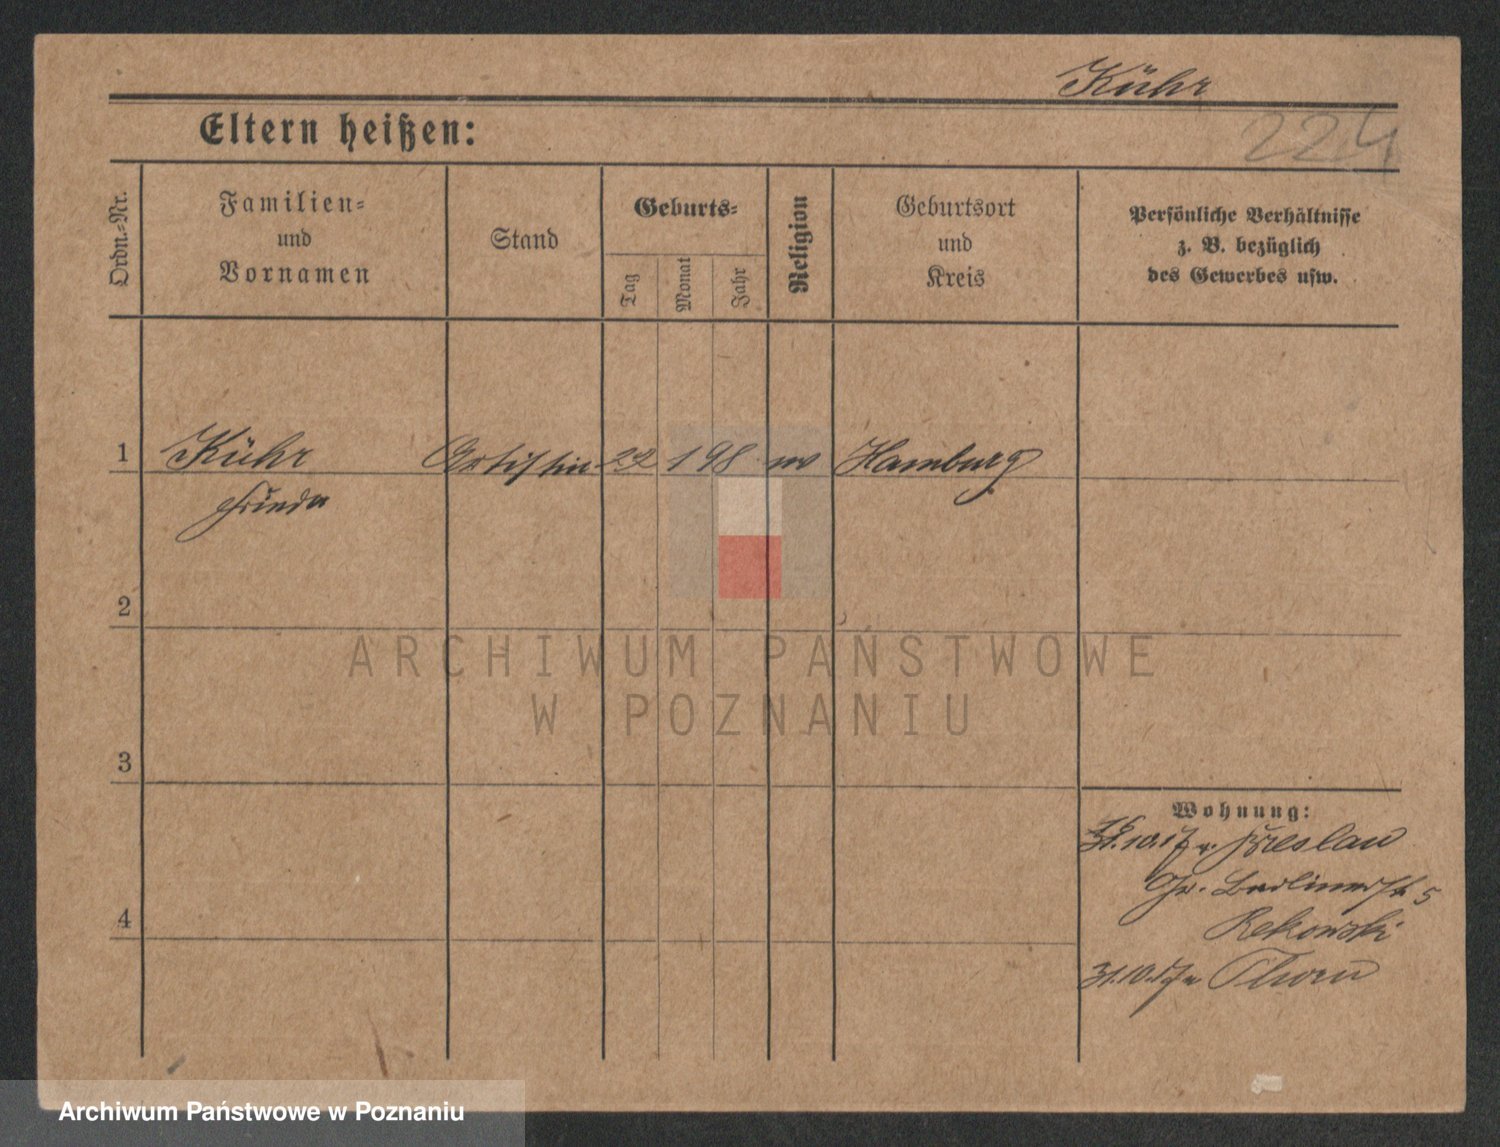 Kühr
224
Eltern heißen:
Ordn.-Nr.
Familien-
und
Vornamen
Stand
Geburts-
Tag
Monat
Jahr
Religion
Geburtsort
und
Kreis
Persönliche Verhältnisse
z. B. bezüglich
des Gewerbes usw.
1 Kühr Artistin 22 1 98 Hamburg
Frieda
2
3
4
Wohnung:
v. Breslau
Gr. Berlinerstr 5
Rekowski
31.10.17 n Thorn
ARCHIWUM PAŃSTWOWE
W POZNANIU
Archiwum Państwowe w Poznaniu